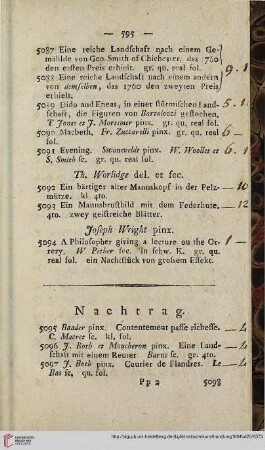 — 595 —
5087 Eine reiche Landschaft nach einem Ge-
mählde von Geo. Smith of Chichester, das 760
den ersten Preis erhielt. gr. qu. real fol.
9. 1
5088 Eine reiche Landschaft nach einem andern
von demselben, das 1760 den zweyten Preis
erhielt.
5089 Dido und Eneas, in einer stürmischen Land-
schaft, die Figuren von Bartolozzi gestochen.
T. Jones et J. Mortimer pinx. gr. qu. real fol.
5. 1
5090 Macbeth. Fr. Zuccarelli pinx. gr. qu. real
fol.
6 —
5091 Evening. Swanevelt pinx. W. Woollet et
S. Smith sc. gr. qu. real fol.
6. 1
Th. Worlidge del. et fec.
5092 Ein bärtiger alter Mannskopf in der Pelz-
mütze. kl. 4to.
— 10
5093 Ein Mannsbrustbild mit dem Federhute.
4to. zwey geistreiche Blätter.
— 12
Joseph Wright pinx.
5094 A Philosopher giving a lecture on the Or-
rery. W. Pether sc. in schw. K. gr. qu.
real fol. ein Nachtstück von grossem Effekt.
1 —
Nachtrag.
5095 Baader pinx. Contentement passe richesse.
C. Macret sc. kl. fol.
— 4
5096 J. Both et Moucheron pinx. Eine Land-
schaft mit einem Reuter. sc. gr. 4to.
— 4
5097 J. Both pinx. Courier de Flandres. Le
Bas sc. qu. fol.
— 4
Pp 2
5098